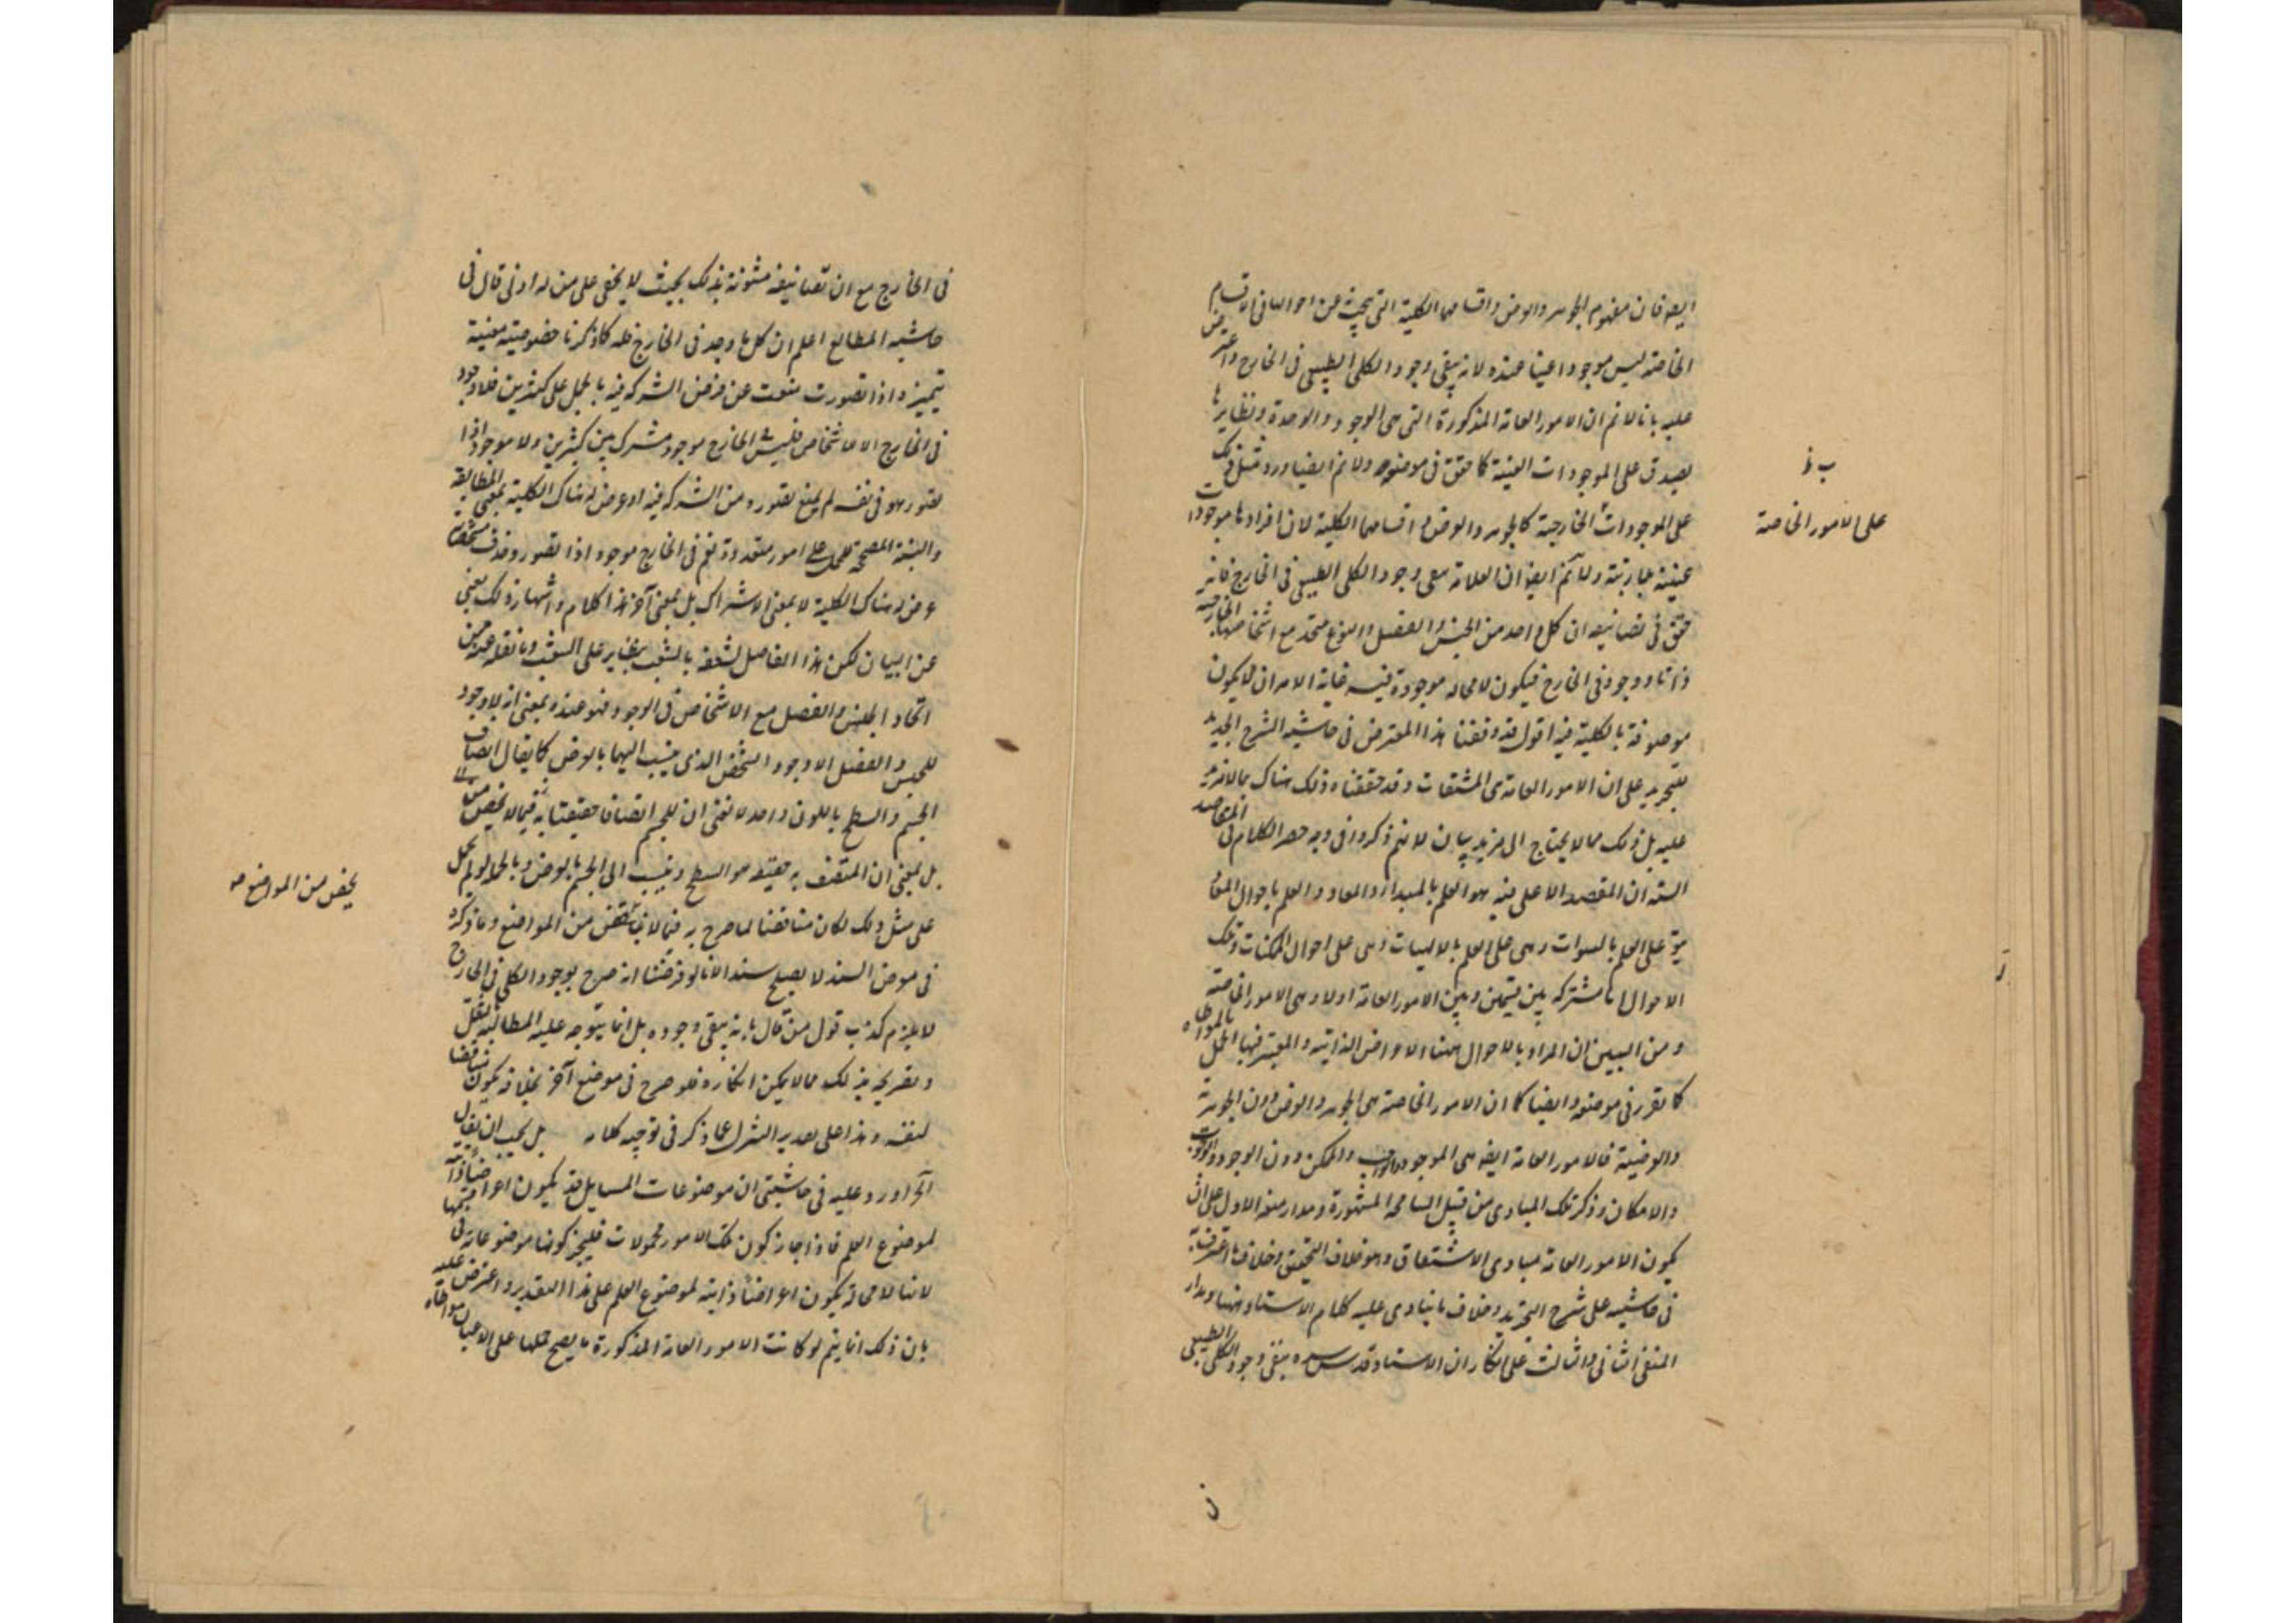 ايضه فان مفهوم الجوهر والعرض واقسامهما الكلية التى يبحث عن احوالها فى الاقسام
الخاصة ليس موجودا عينا عنده لانه ينفى وجود الكلى الطبيعى فى الخارج واعترض
عليه بانا لانم ان الامور العامة المذكورة التى هى الوجود والوحدة ونظايرها
يصدق على الموجودات العينية كما حقق فى موضعه ولانم ايضا ورود مثل ذلك
على الموجودات الخارجية كالجوهر والعرض واقسامهما الكلية لان افرادها موجودات
عينية خارجية ولانم ايضا ان العلامة نفى وجود الكلى الطبيعى فى الخارج فانه
حقق فى تصانيفه ان كل واحد من الجنس والفصل والنوع متحد مع اشخاصها الخارجية
ذاتا ووجودا فى الخارج فيكون لا محاله موجودة فيه غاية الامر ان لا يكون
موصوفة بالكلية فيه اقول قد وفقنا هذا المعترض فى حاشيه الشرح الجديد
للتجريد على ان الامور العامة هى المشتقات وقد حققناه ذلك هناك بما لا مزيد
عليه بل ذلك مما لا يحتاج الى مزيد بيان لانهم ذكروا فى وجه حصر الكلام فى المقاصد
الستة ان المقصد الاعلى فيه هو العلم بالمبدا والمعاد والعلم باحوال المعاد
يتوقف على العلم بالنبوات وهى على العلم بالالهيات وهى على احوال الممكنات وتلك
الاحوال اما مشتركه بين قسمين وبين الامور العامة اولا وهى الامور الخاصة
ومن البين ان المراد بالاحوال ههنا الاعراض الذاتية والمعتبر فيها الحمل بالمواطاه
كما تقرر فى موضعه وايضا كما ان الامور الخاصة هى الجوهر والعرض دون الجوهرية
والعرضية فالامور العامة ايضه هى الموجود والواجب والممكن دون الوجود والوجوب
والامكان وذكر تلك المبادى من قبيل المسامحة المشهورة ومدار منعه الاول على ان
يكون الامور العامة مبادى الاشتقاق وهو خلاف التحقيق وخلاف ما اعترف به
فى حاشيه على شرح التجريد وخلاف ما ينادى عليه كلام الاستاد ههنا ومدار
المنفى الثانى والثالث على انكار ان الاستاد قدس سره ينفى وجود الكلى الطبيعى
على الامور الخاصة
فى الخارج مع ان تصانيفه مشحونة بذلك بحيث لا يخفى على من له ادنى قال فى
حاشيه المطالع اعلم ان كل ما وجد فى الخارج فله كما ذكرنا خصوصية معينة
يتميز واذا تصورت منعت عن فرض الشركه فيه بالحمل على كثيرين فلا وجود
فى الخارج الا الاشخاص فليس فى الخارج موجود مشترك بين كثيرين ولا موجود اذا
تصور هو فى نفسه لم يمنع تصوره من الشركه فيه او عرض له هناك الكلية بمعنى المطابقة
والنسبة المصححة للحمل على امور متعددة نعم فى الخارج موجود اذا تصور وحذف مشخصاته
عرض له هناك الكلية لا بمعنى الاشتراك بل بمعنى آخر هذا كلامه واشتهار ذلك يغنى
عن البيان لكن هذا الفاضل لشغفه بالشغب وما نقله عنه من
اتحاد الجنس والفصل مع الاشخاص فى الوجود فهو عنده بمعنى انه لا وجود
للجنس والفصل الا وجود الشخص الذى ينسب اليهما بالعرض كما يقال اتصاف
الجسم والسطح باللون واحد لا نعنى ان للجسم اتصافا حقيقيا به فيما لا يحصى من
بل بمعنى ان المتصف به حقيقه هو السطح وينسب الى الجسم بالعرض وبالجمله لو لم يحمل
على مثل ذلك لكان مناقضا لما صرح به فيما لا يحصى من المواضع وما ذكره
فى معرض السند لا يصلح سندا لانا لو فرضنا انه صرح بوجود الكلى فى الخارج
لا يلزم كذب قول من قال بانه ينفى وجوده بل انما يتوجه عليه المطالبة بالنقل
وتصريحه بذلك مما لا يمكن انكاره فلو صرح فى موضع آخر بخلافه يكون مناقضا
لنفسه وهذا على تقدير التنزل عما ذكر فى توجيه كلامه بل يجب ان يقال
آخر اورد عليه فى حاشيتى ان موضوعات المسايل قد يكون اعراضا ذاتية
لموضوع العلم فاذا جاز كون تلك الامور محمولات فليجز كونها موضوعات فى
لانها لا محالة يكون اعراضا ذاتية لموضوع العلم على هذا التقدير واعترض عليه
بان ذلك انما يتم لو كانت الامور العامة المذكورة ما يصح حملها على الاعيان مواطاه
يحصى من المواضع صه